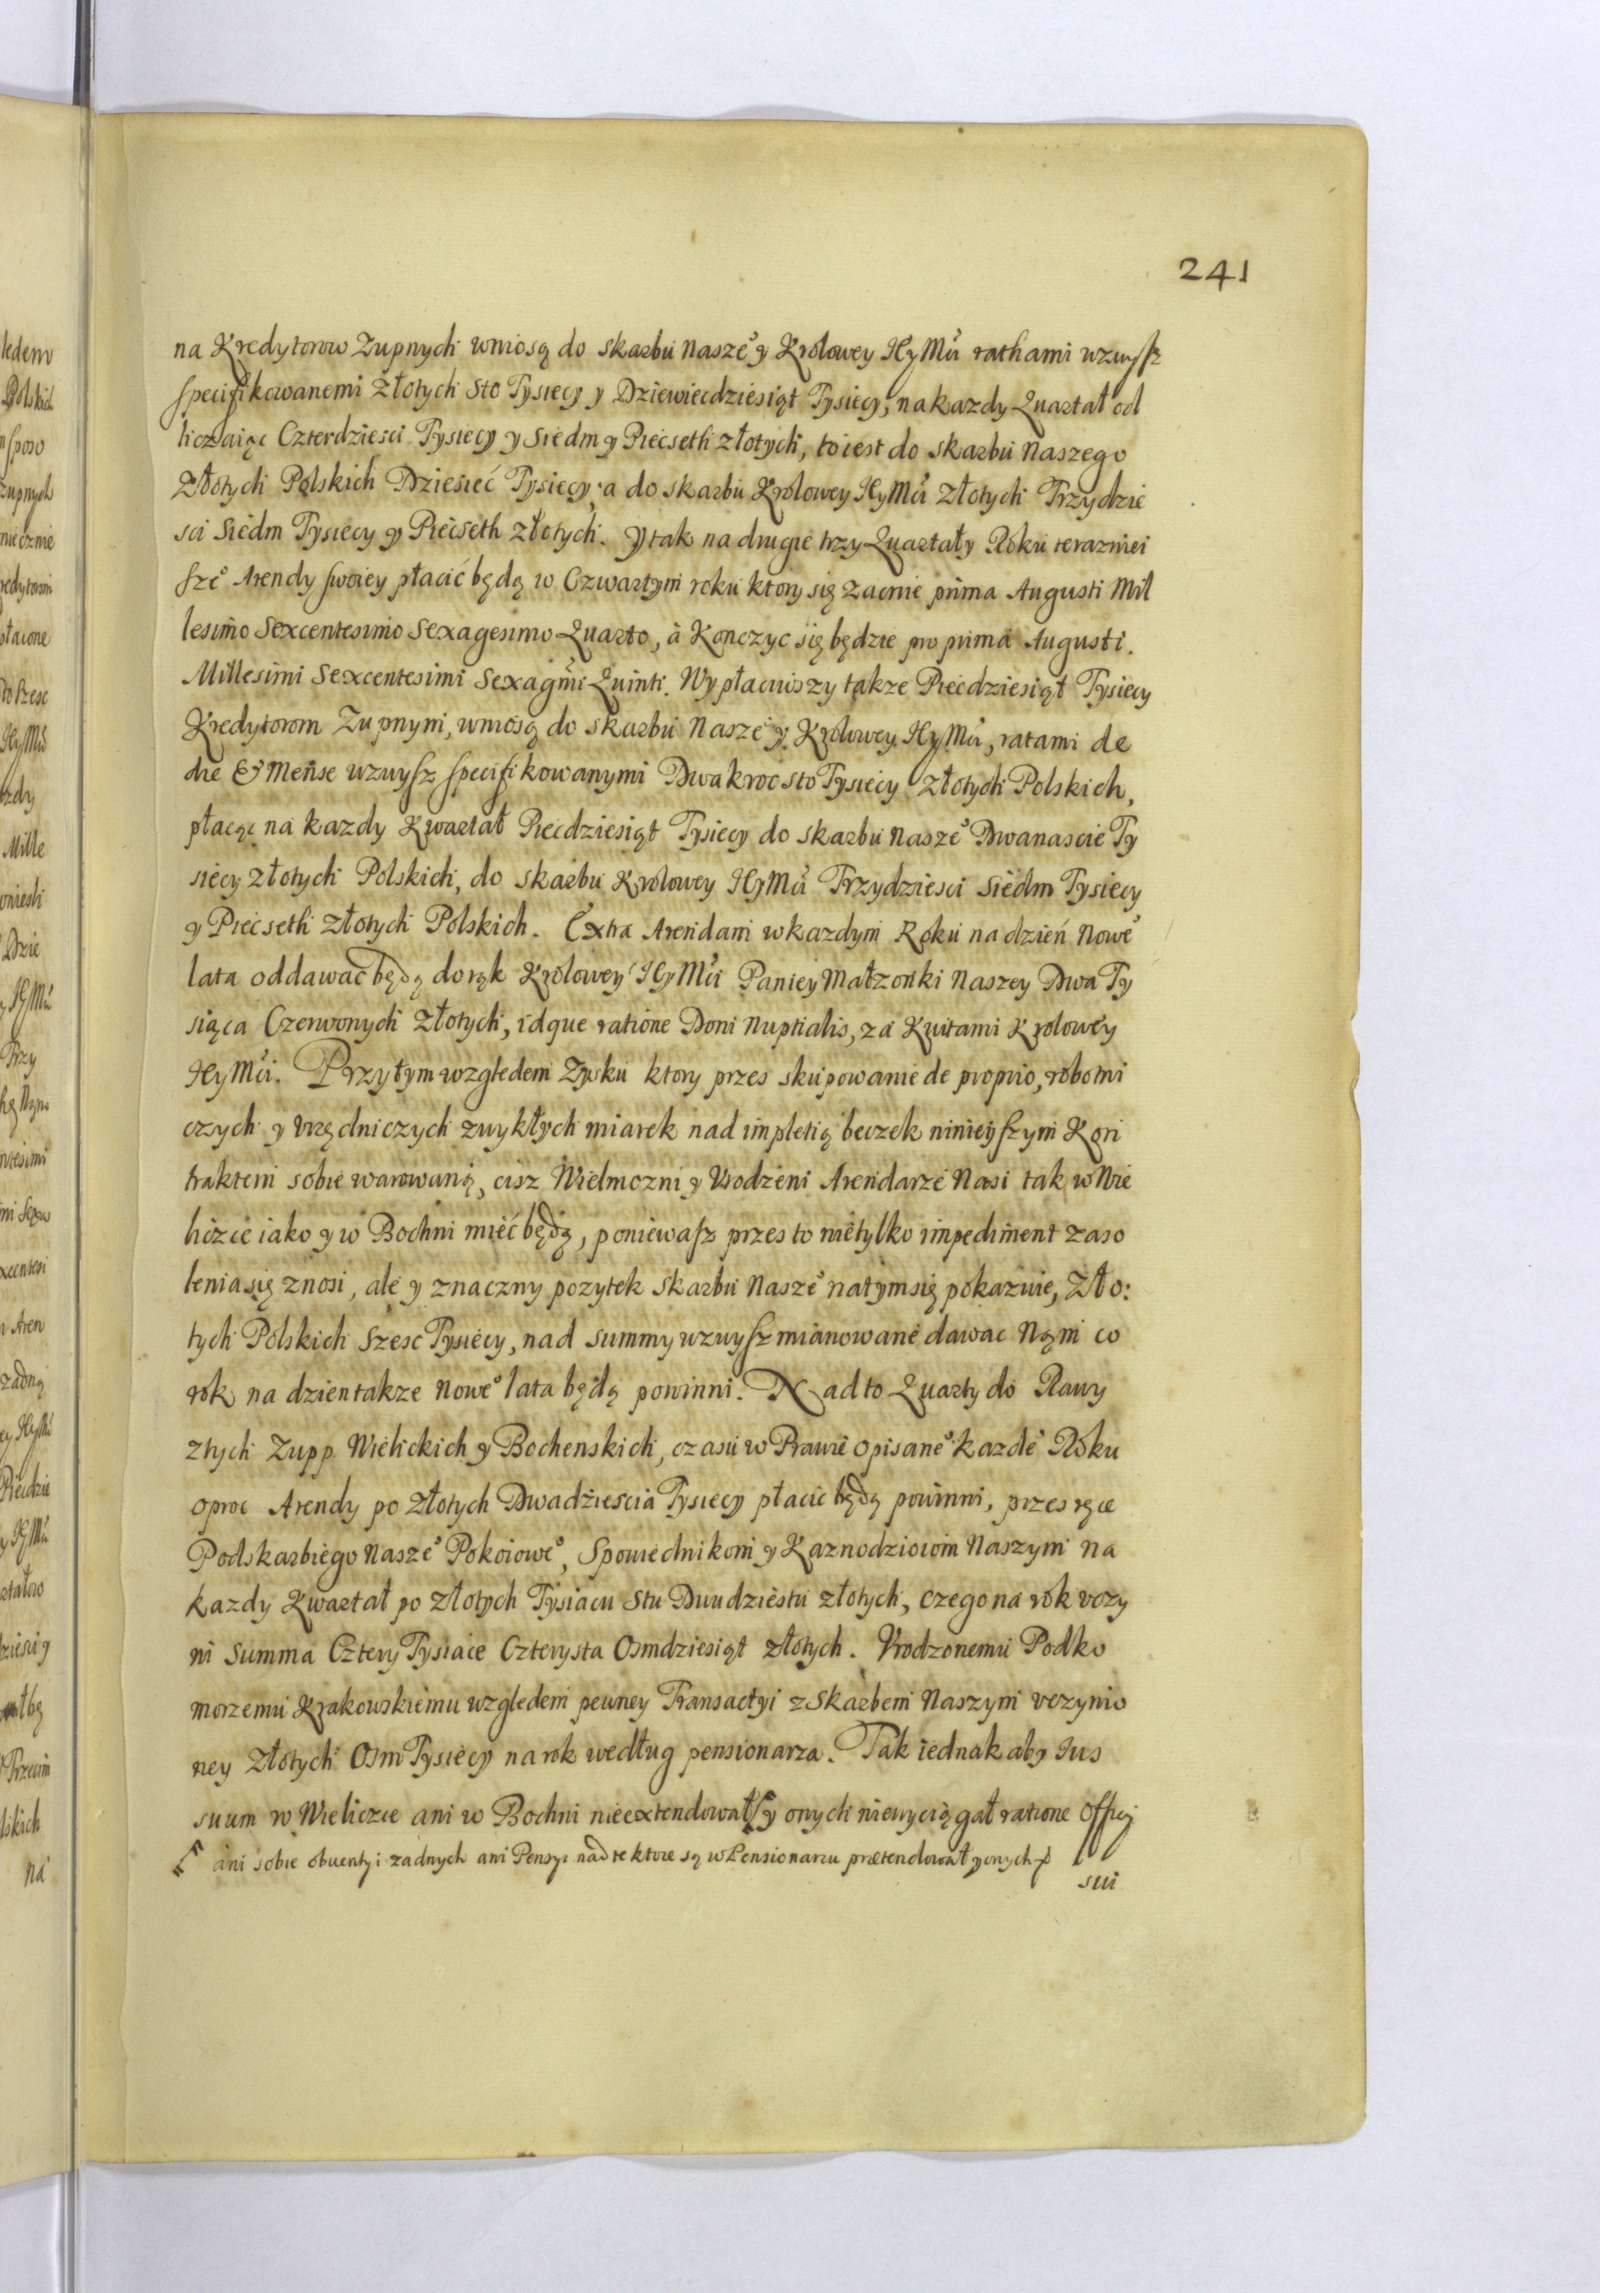 241
na Kredytorow Zupnych wniosą do skarbu Nasze° y Krolowey JeyMći rathami wzwysz
specifikowanemi Złotych Sto Tysięcy y Dziewiecdziesiąt Tysięcy, na kazdy Quartał od
liczaiąc Czterdziesci Tysięcy y Siedm y Piecseth złotych, to iest do skarbu Naszego
Złotych Polskich Dziesieć Tysięcy, a do skarbu Krolowey JeyMći Złotych Trzydzie
sci Siedm Tysięcy y Piecseth złotych. Y tak na drugie trzy Quartały Roku terazniei
sze° Arendy swoiey płacić będą w Czwartym roku ktory się zacnie prima Augusti Mil
lesimo Sexcentesimo Sexagesimo Quarto, à Konczyc się będzie pro prima Augusti.
Millesimi Sexcentesimi Sexagmi Quinti. Wypłaciwszy takze Piecdziesiąt Tysięcy
Kredytorom Zupnym, wniosą do skarbu Nasze° y Krolowey JeyMći, ratami de
die & Mense wzwysz specifikowanymi Dwakroc sto Tysięcy Złotych Polskich,
płacąc na kazdy Kwartał Piecdziesiąt Tysięcy do skarbu Nasze° Dwanascie Ty
sięcy złotych Polskich, do skarbu Krolowey JeyMći Trzydziesci Siedm Tysiecy
y Piecseth złotych Polskich. Extra Arendam w kazdym Roku na dzień Nowe°
lata oddawac będą do rąk Krolowey JeyMći Paniey Małzonki Naszey Dwa Ty
siąca Czerwonych złotych, idque ratione Doni Nuptialis, za Kwitami Krolowey
JeyMći. Przytym względem Zysku ktory przes skupowanie de proprio, robotni
czych y Vrzędniczych zwykłych miarek nad impletią beczek ninieyszym Kon
traktem sobie warowaną, cisz Wielmozni y Vrodzeni Arendarze Nasi tak w Wie
liczce iako y w Bochni mieć będą, poniewasz przes to nietylko impediment zaso
lenia się znosi, ale y znaczny pozytek skarbu Nasze° natym się pokazuie, Zło:
tych Polskich Szesc Tysięcy, nad summy wzwysz mianowane dawac Nąm co
rok na dzien takze Nowe° lata będą powinni. Nad to Quarty do Rawy
z tych Zupp Wielickich y Bochenskich, czasu w Prawie opisane° kazde° Roku
oproc Arendy po złotych Dwadziescia Tysięcy płacic będą powinni, przes ręce
Podskarbiego Nasze° Pokoiowe°, Spowiednikom y Kaznodzioiom Naszym na
kazdy Kwartał po złotych Tysiącu Stu Dwudziestu złotych, czego na rok vczy
ni Summa Cztery Tysiące Czterysta Osmdziesiąt złotych. Vrodzonemu Podko
morzemu Krakowskiemu względem pewney Transactyi z Skarbem Naszym vczynio
ney Złotych Osm Tysięcy na rok według pensionarza. Tak iednak aby Jus
suum w Wieliczce ani w Bochni nieextendował y onych niewyciągał ratione Officij
ani sobie obuentyi zadnych ani Pensyi nad te ktore są w Pensionarzu prætendował y onych
sui